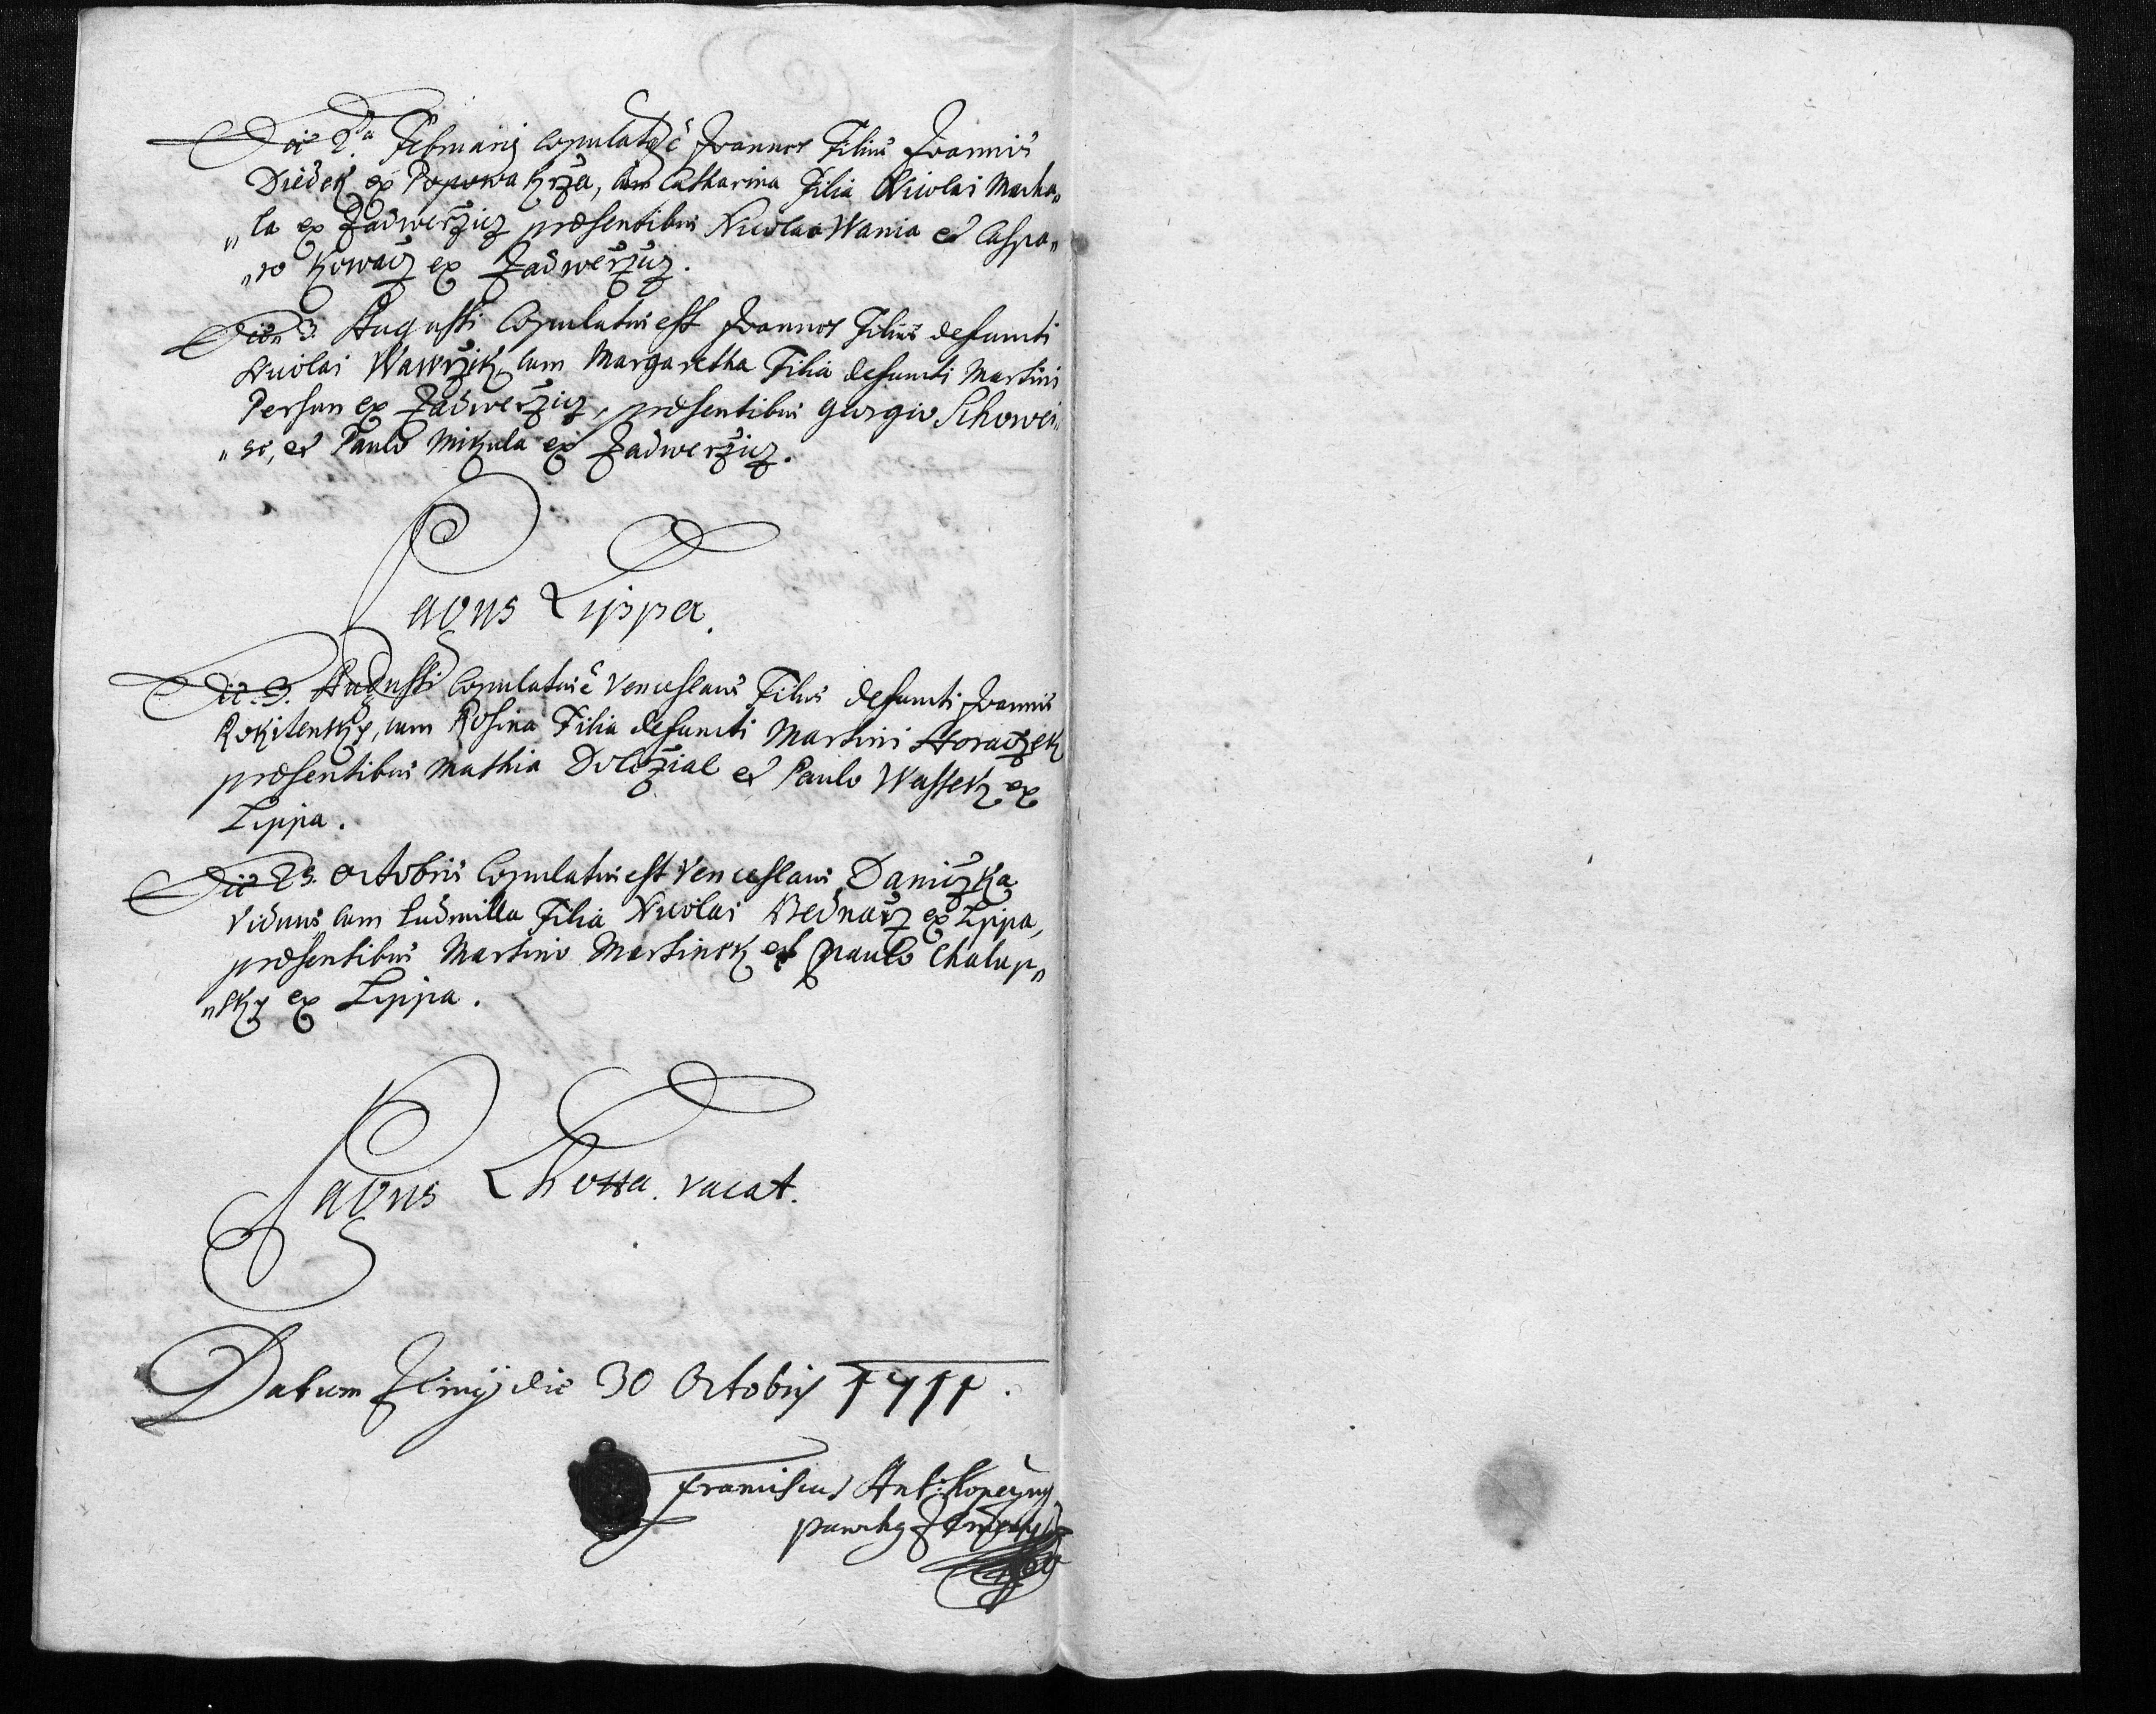 Die 2da Februarij Copulatus ē Joannes Filius Joannis
Diedek ex Popowa Krža, cum Catharina Filia Nicolai Macha„
„la ex Zadweržicz præsentibus Nicolao Wania et Caspa„
„ro Kowacz ex Zadweržicz.
Die 3. Augusti Copulatus est Joannes Filius defuncti
Nicolai Wawržik, cum Margaretha Filia defuncti Martini
Persun ex Zadweržicz, præsentibus Georgio Schowei„
„se, et Paulo Mikula ex Zadweržicz.
Pagus Lippa.
Die 3. Augusti Copulatus ē Venceslaus Filius defuncti Joannis
Rokitensky, cum Rosina Filia defuncti Martini Horaczek
præsentibus Mathia Doležial et Paulo Wassek ex
Lippa.
Die 23. Octobris Copulatus est Venceslaus Daniczka
Viduus cum Ludmilla Filia Nicolai Bednarž ex Lippa,
præsentibus Martino Martinek et Paulo Chalup„
„sky ex Lippa.
Pagus Lhotta. vacat.
Datum Zlinij die 30 Octobris 1711.
Franciscus Ant: